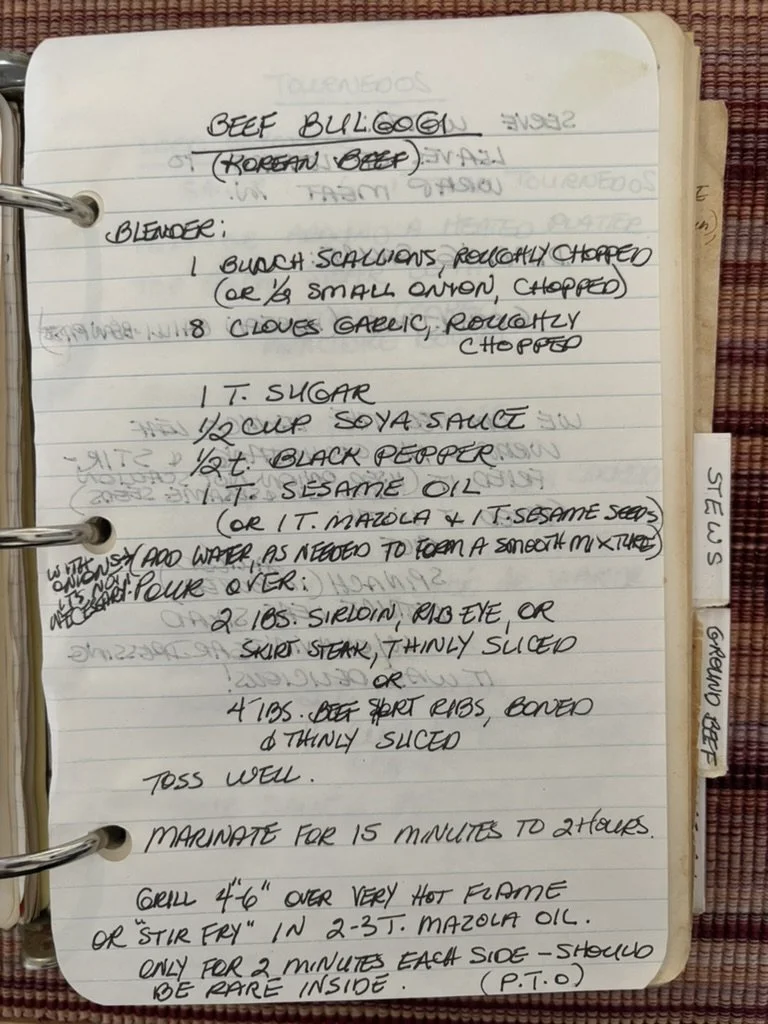 BEEF BULGOGI
(KOREAN BEEF)
BLENDER:
1 BUNCH SCALLIONS, ROUGHLY CHOPPED
(OR 1/2 SMALL ONION, CHOPPED)
8 CLOVES GARLIC, ROUGHLY
CHOPPED
1 T. SUGAR
1/2 CUP SOYA SAUCE
1/2 t. BLACK PEPPER
1 T. SESAME OIL
(OR 1 T. MAZOLA & 1 T. SESAME SEEDS)
(ADD WATER, AS NEEDED TO FORM A SMOOTH MIXTURE)
WITH
ONIONS
IT'S NOT
NECESSARY.
POUR OVER:
2 lbs. SIRLOIN, RIB EYE, OR
SKIRT STEAK, THINLY SLICED
OR
4 lbs. BEEF SHORT RIBS, BONED
& THINLY SLICED
TOSS WELL.
MARINATE FOR 15 MINUTES TO 2 HOURS.
GRILL 4"-6" OVER VERY HOT FLAME
OR "STIR FRY" IN 2-3 T. MAZOLA OIL.
ONLY FOR 2 MINUTES EACH SIDE - SHOULD
BE RARE INSIDE. (P.T.O)
STEWS
GROUND BEEF